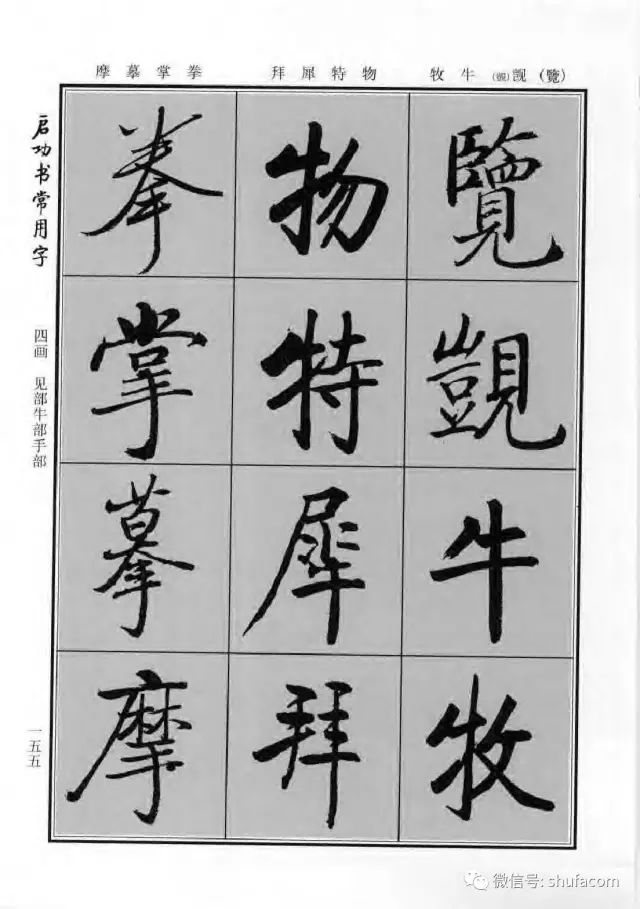 (覽)觊(覬)牛牧
物特犀拜
拳掌摹摩
覽
覬
牛
牧
物
特
犀
拜
拳
掌
摹
摩
启功书常用字
四画 见部牛部手部
一五五
微信号: shufacom